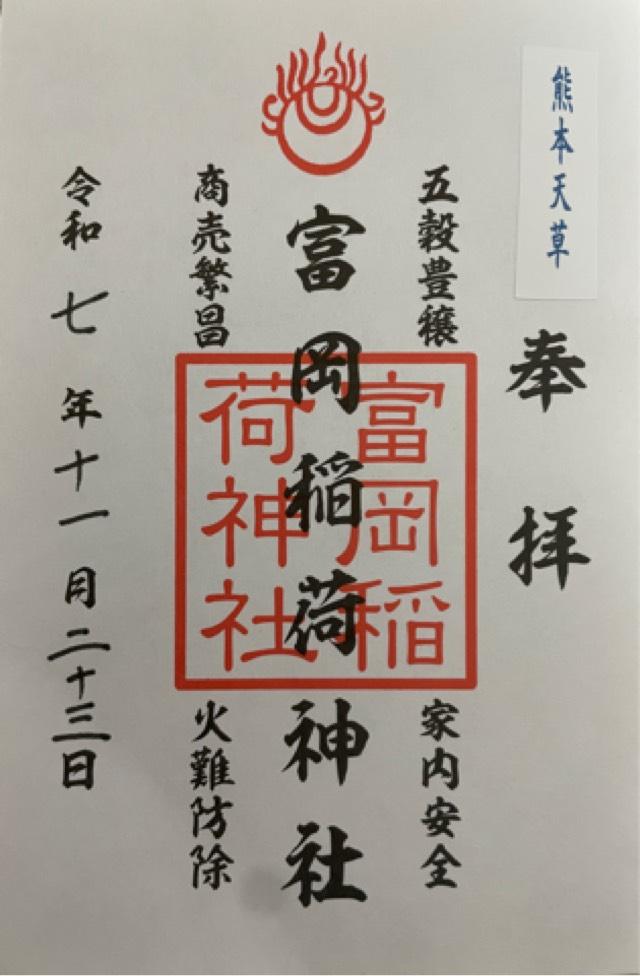 熊本天草
奉拝
五穀豊穣
家内安全
富岡稲荷神社
富岡稲
荷神社
商売繁昌
火難防除
令和七年十一月二十三日